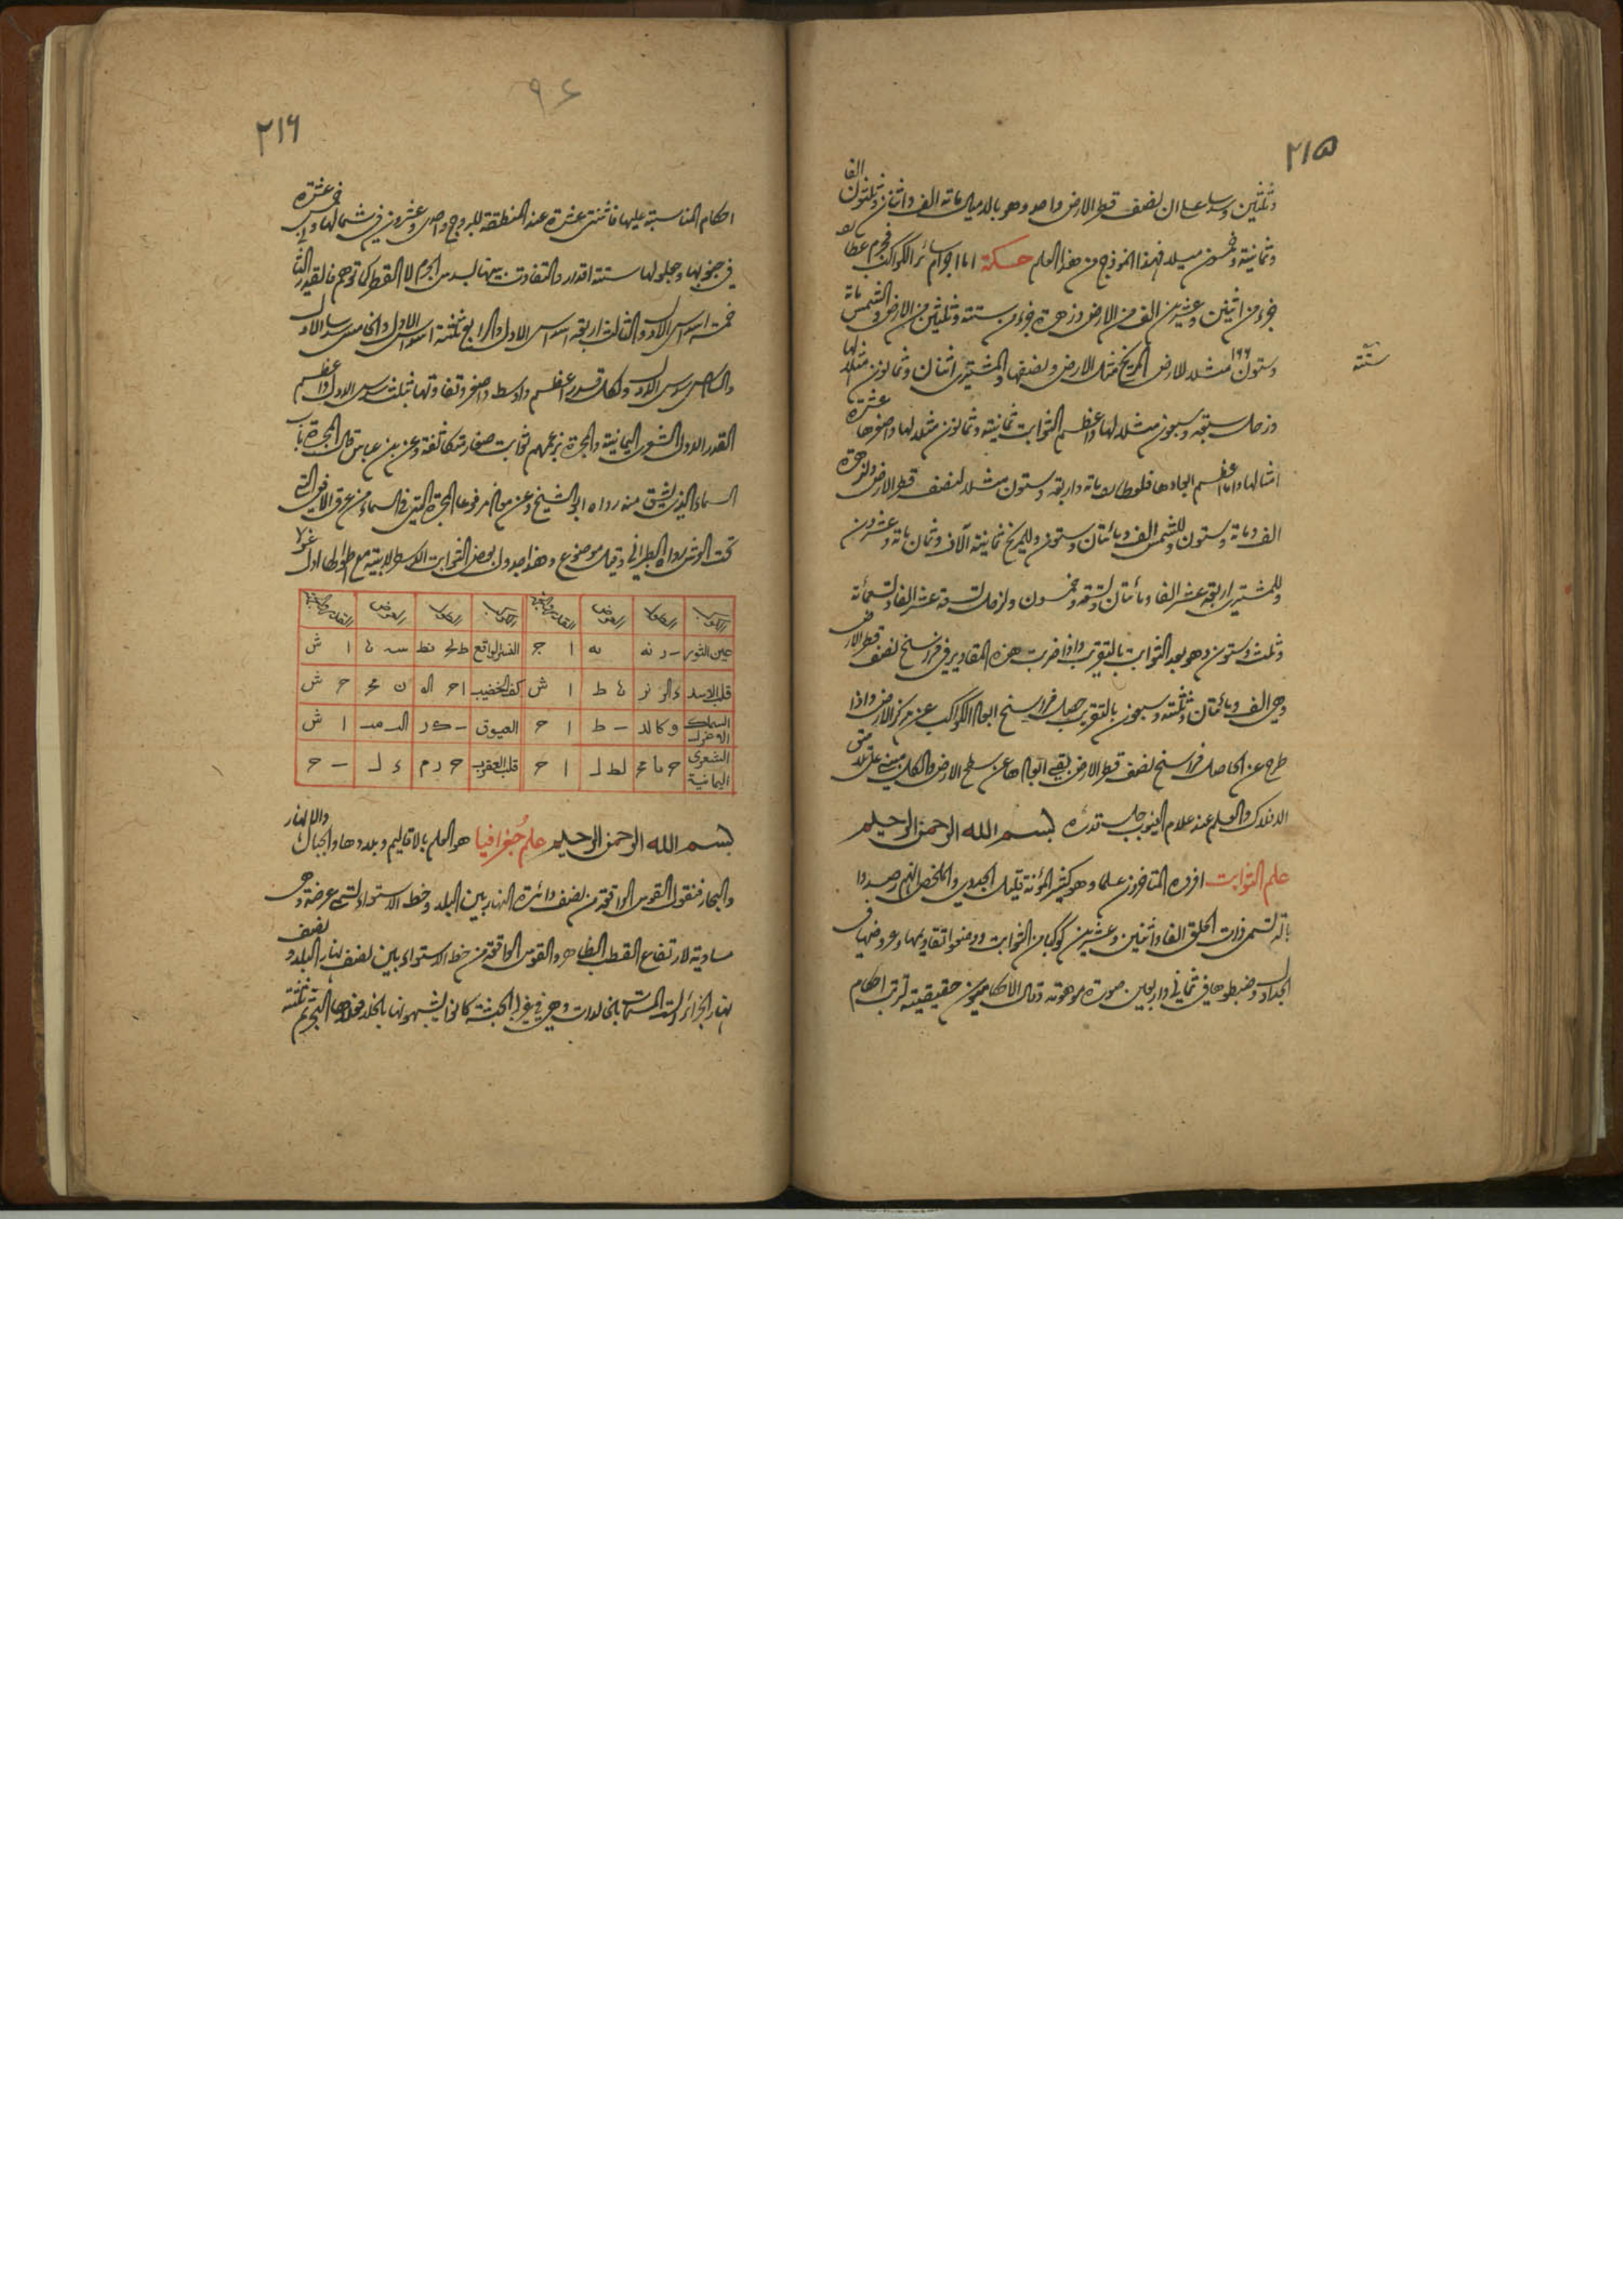 ٢١٥
الفا
وثلثين وسدسا على ان نصف قطر الارض واحد وهو بالاميال مائة الف واثنان وثلثون
وثمانية وخمسون ميلا فهذا انموذج من هذا العلم حسكة اما اجرام سائر الكواكب فجرم عطارد
جزء من اثنين وعشرين الف من الارض وزهرة جزء من ستة وثلثين من الارض والشمس مائة
ستة
وستون ١٦٦ مثلا للارض المريخ مثل الارض ونصفها والمشتري اثنان وثمانون مثلا لها
وزحل سبعة وسبعون مثلا لها واعظم الثوابت ثمانية وثمانون مثلا لها واصغرها عشرة
امثالها واما اعظم ابعادها فلعطارد مائة واربعة وستون مثلا لنصف قطر الارض ولزهرة
الف ومائة وستون للشمس الف ومائتان وستون وللمريخ ثمانية آلاف وثمان مائة وعشرون
وللمشتري اربعة عشر الفا ومائتان وتسعة وخمسون ولزحل تسعة عشر الفا وتسعمائة
وثلث وستون وهو بعد الثوابت بالتقريب واذا ضربت هذه المقادير في فراسخ نصف قطر الارض
وهي الف ومائتان وثلثة وسبعون بالتقريب حصل فراسخ ابعاد الكواكب عن مركز الارض واذا
طرح عن الحاصل فراسخ نصف قطر الارض بقي ابعادها عن سطح الارض والكل مبني على تلاصق
الافلاك والعلم عند علام الغيوب جلت قدرته بسم الله الرحمن الرحيم
علم الثوابت افرده المتاخرون علما وهو كثير المؤنة قليل الجدوى والملخص انهم رصدوا
بآلة تسمى ذات الحلق الفا واثنين وعشرين كوكبا من الثوابت ووضعوا تقاويمها وعروضها في
الجداول وضبطوها في ثماني واربعين صورة موهومة وقال الاحكاميون حقيقية لترتب احكام
٩٤
٢١٦
احكام المناسبة عليها فاثنتى عشرة عند المنطقة للبروج واحدى وعشرون في شمالها وخمس عشرة
في جنوبها وجعلوا لها ستة اقدار والتفاوت بينها بسدس الجرم لا القطر كما توهم فالقدر الثاني
خمسة اسداس الاول والثالث اربعة اسداس الاول والرابع ثلثة اسداس الاول والخامس سدسا الاول
والسادس سدس الاول ولكل قدر اعظم واوسط واصغر وتفاوتها بثلث سدس الاول واعظم
القدر الاول الشعرى اليمانية والمجرة بزعمهم ثوابت صغار متكاثفة وعن ابن عباس قال المجرة باب
السماء الذي تنشق منه رواه ابو الشيخ وعن معاذ مرفوعا المجرة التي في السماء من عرق الافعى التي
تحت العرش رواه الطبراني وقيل موضوع وهذا جدول بعض الثوابت الاسطرلابية مع طوالها اول
الكوكب الطول العرض القدر والجهة الكوكب الطول العرض القدر والجهة
عين الثور ا ج النسر الواقع ا ش
قلب الاسد ا ش كف الخضيب ح ش
السماك الاعزل ا ح العيوق ا ش
الشعرى اليمانية ا ح قلب العقرب ح
بسم الله الرحمن الرحيم علم جغرافيا هو العلم بالاقاليم وبلادها والجبال والانهار
والبحار فنقول القوس الواقعة من نصف دائرة النهار بين البلد وخط الاستواء تسمى عرضه وهي
مساوية لارتفاع القطب الظاهر والقوس الواقعة من خط الاستواء بين نصف نهار البلد ونصف
نهار الجزائر الست المسماة بالخالدات وهي في غرب الحبشة كانوا يشبهونها بالخلد